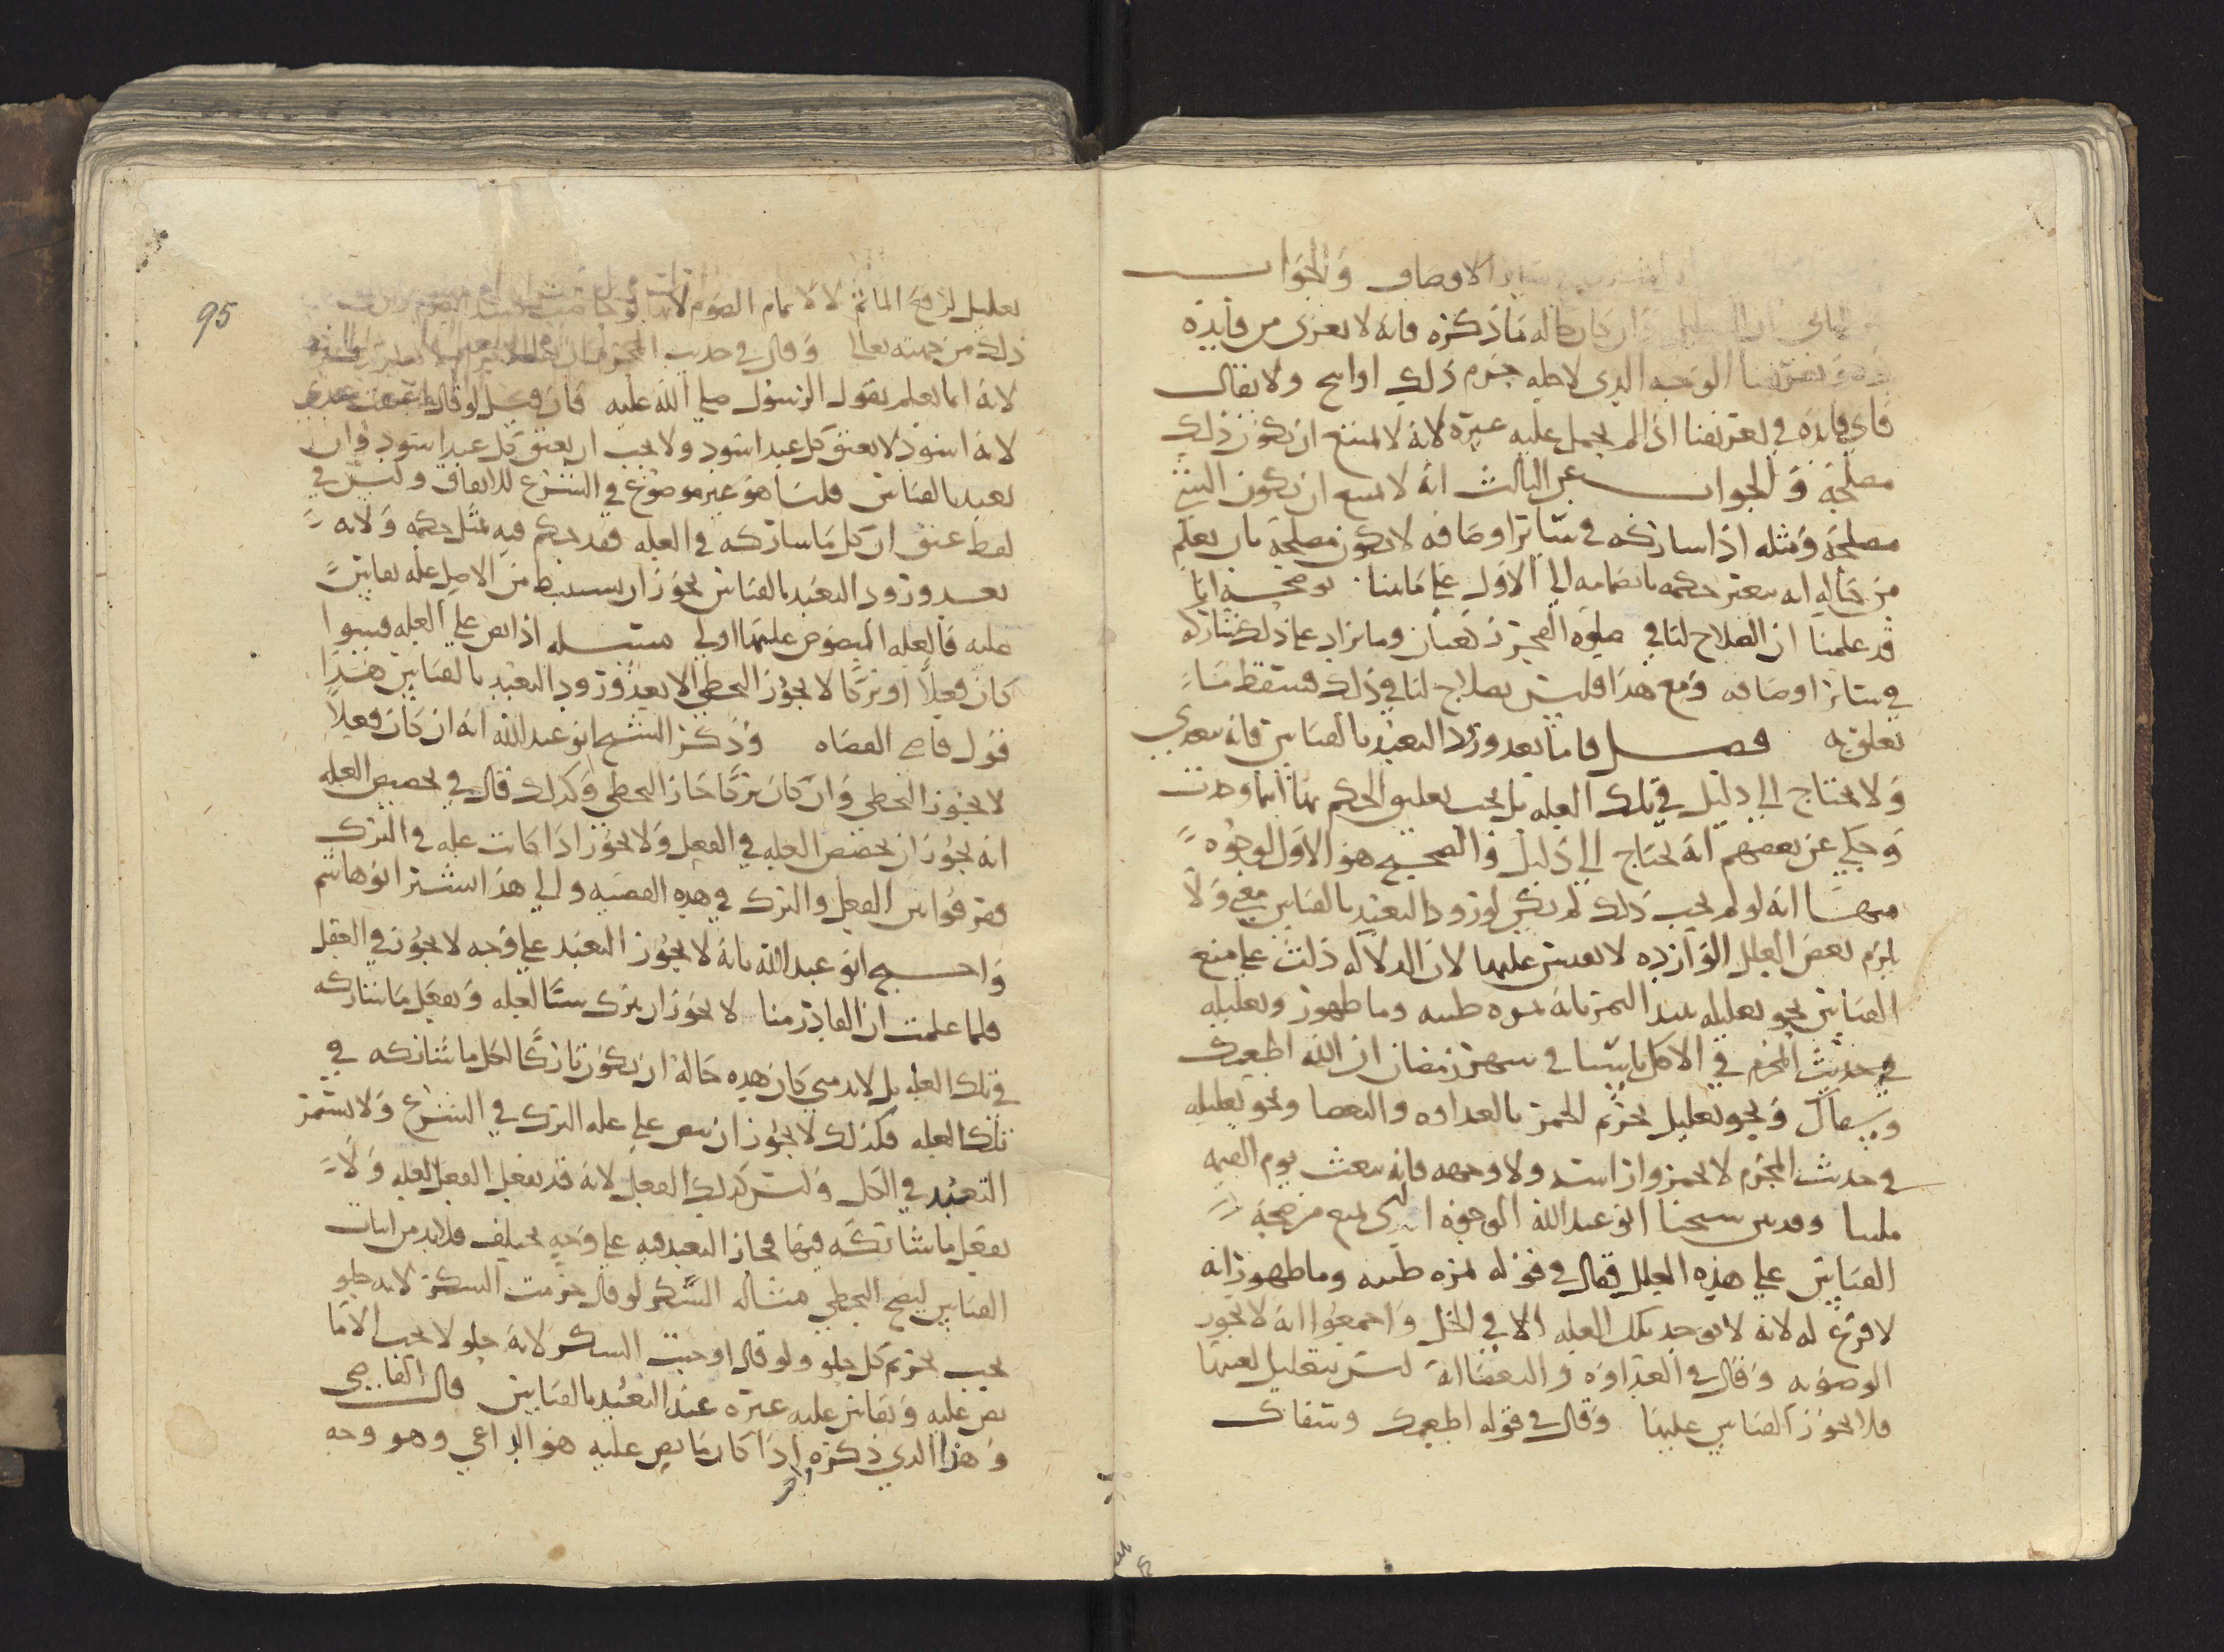 الاوصاف والجواب
وان كان حاله ما ذكره فانه لا يعرى من فايده
وهو تعريفنا الوجه الذي لاجله حرم ذلك او ابيح ولا يقال
فاي فايده في تعريفنا اذا لم يحمل عليه غيره لانه لا يمتنع ان يكون ذلك
مصلحة والجواب عن الثالث انه لا يمتنع ان يكون الشي
مصلحة ومثله اذا شاركه في سائر اوصافه لا يكون مصلحة بان يعلم
من حاله انه يتغير حكمه بانضمامه الى الاول على ما بينا يوضحه انا
قد علمنا ان الصلاح لنا في صلوة الفجر ركعتان وما يزاد على ذلك يشاركه
في سائر اوصافه ومع هذا فليس بصلاح لنا في ذلك فسقط ما
تعلق به فصل فاما بعد ورود التعبد بالقياس فانه يتعدى
ولا يحتاج الى دليل في تلك العله بل يجب تعليق الحكم بها اينما وجدت
وحكي عن بعضهم انه يحتاج الى دليل والصحيح هو الاول لوجوه
منها انه لو لم يجب ذلك لم يكن لورود التعبد بالقياس معنى ولا
يلزم بعض العلل الوارده لا يقيس عليها لان الدلاله دلت على منع
القياس نحو تعليله نبيذ التمر بانه ثمره طيبه وما طهور وتعليله
في حديث المحرم في الاكل ناسيا في شهر رمضان ان الله اطعمك
وسقاك ونحو تعليل تحريم الخمر بالعداوه والبغضا ونحو تعليله
في حديث المحرم لا تخمروا راسه ولا وجهه فانه يبعث يوم القيمه
ملبيا وقد بين شيخنا ابو عبد الله الوجوه التي تمنع من صحة
القياس على هذه العلل فقال في قوله ثمره طيبه وما طهور انه
لا فرع له لانه لا توجد تلك العله الا في الخل واجمعوا انه لا يجوز
الوضو به وقال في العداوه والبغضا انه ليس بتعليل لعينها
فلا يجوز القياس عليها وقال في قوله اطعمك وسقاك
95
تعليل لرفع الماثم لا لاتمام الصوم لانه
ذلك من جهته تعالى وقال في حديث المحرم
لانه انما يعلم بقول الرسول صلى الله عليه فان قيل لو قال اعتقت عبدي
لانه اسود لا يعتق كل عبد اسود ولا يجب ان يعتق كل عبد اسود وان
تعبد بالقياس قلنا هو غير موضوع في الشرع للايقاف وليس في
لفظ عتق ان كل ما شاركه في العله فقد حكم فيه بمثل حكمه ولانه
بعد ورود التعبد بالقياس يجوز ان يستنبط من الاصل عله يقاس
عليه فالعله المنصوص عليها اولى مسله اذا نص على العله فسوا
كان فعلا او تركا لا يجوز التخطي الا بعد ورود التعبد بالقياس هذا
قول قاضي القضاه وذكر الشيخ ابو عبد الله انه ان كان فعلا
لا يجوز التخطي وان كان تركا جاز التخطي وكذلك قال في تخصيص العله
انه يجوز ان يخصص العله في الفعل ولا يجوز اذا كانت عله في الترك
ففرقوا بين الفعل والترك في هذه القضيه والى هذا اشار ابو هاشم
واحتج ابو عبد الله بانه لا يجوز التعبد على وجه لا يجوز في العقل
فلما علمت ان القادر منا لا يجوز ان يترك شيا لعله ويفعل ما شاركه
في تلك العله بل لا بد متى كان هذه حاله ان يكون تاركا لكل ما شاركه في
تلك العله فكذلك لا يجوز ان ينص على عله الترك في الشرع ولا يستمر
التعبد في الكل وليس كذلك الفعل لانه قد يفعل الفعل لعله ولا
يفعل ما شاركه فيها فجاز التعبد فيه على وجه يختلف فلا بد من اثبات
القياس ليصح التخطي مثاله السكر لو قال حرمت السكر لانه حلو
يجب تحريم كل حلو ولو قال اوجبت السكر لانه حلو لا يجب الا ما
نص عليه ويقاس عليه غيره عند التعبد بالقياس قال القاضي
وهذا الذي ذكره اذا كان ما نص عليه هو الداعي وهو وجه